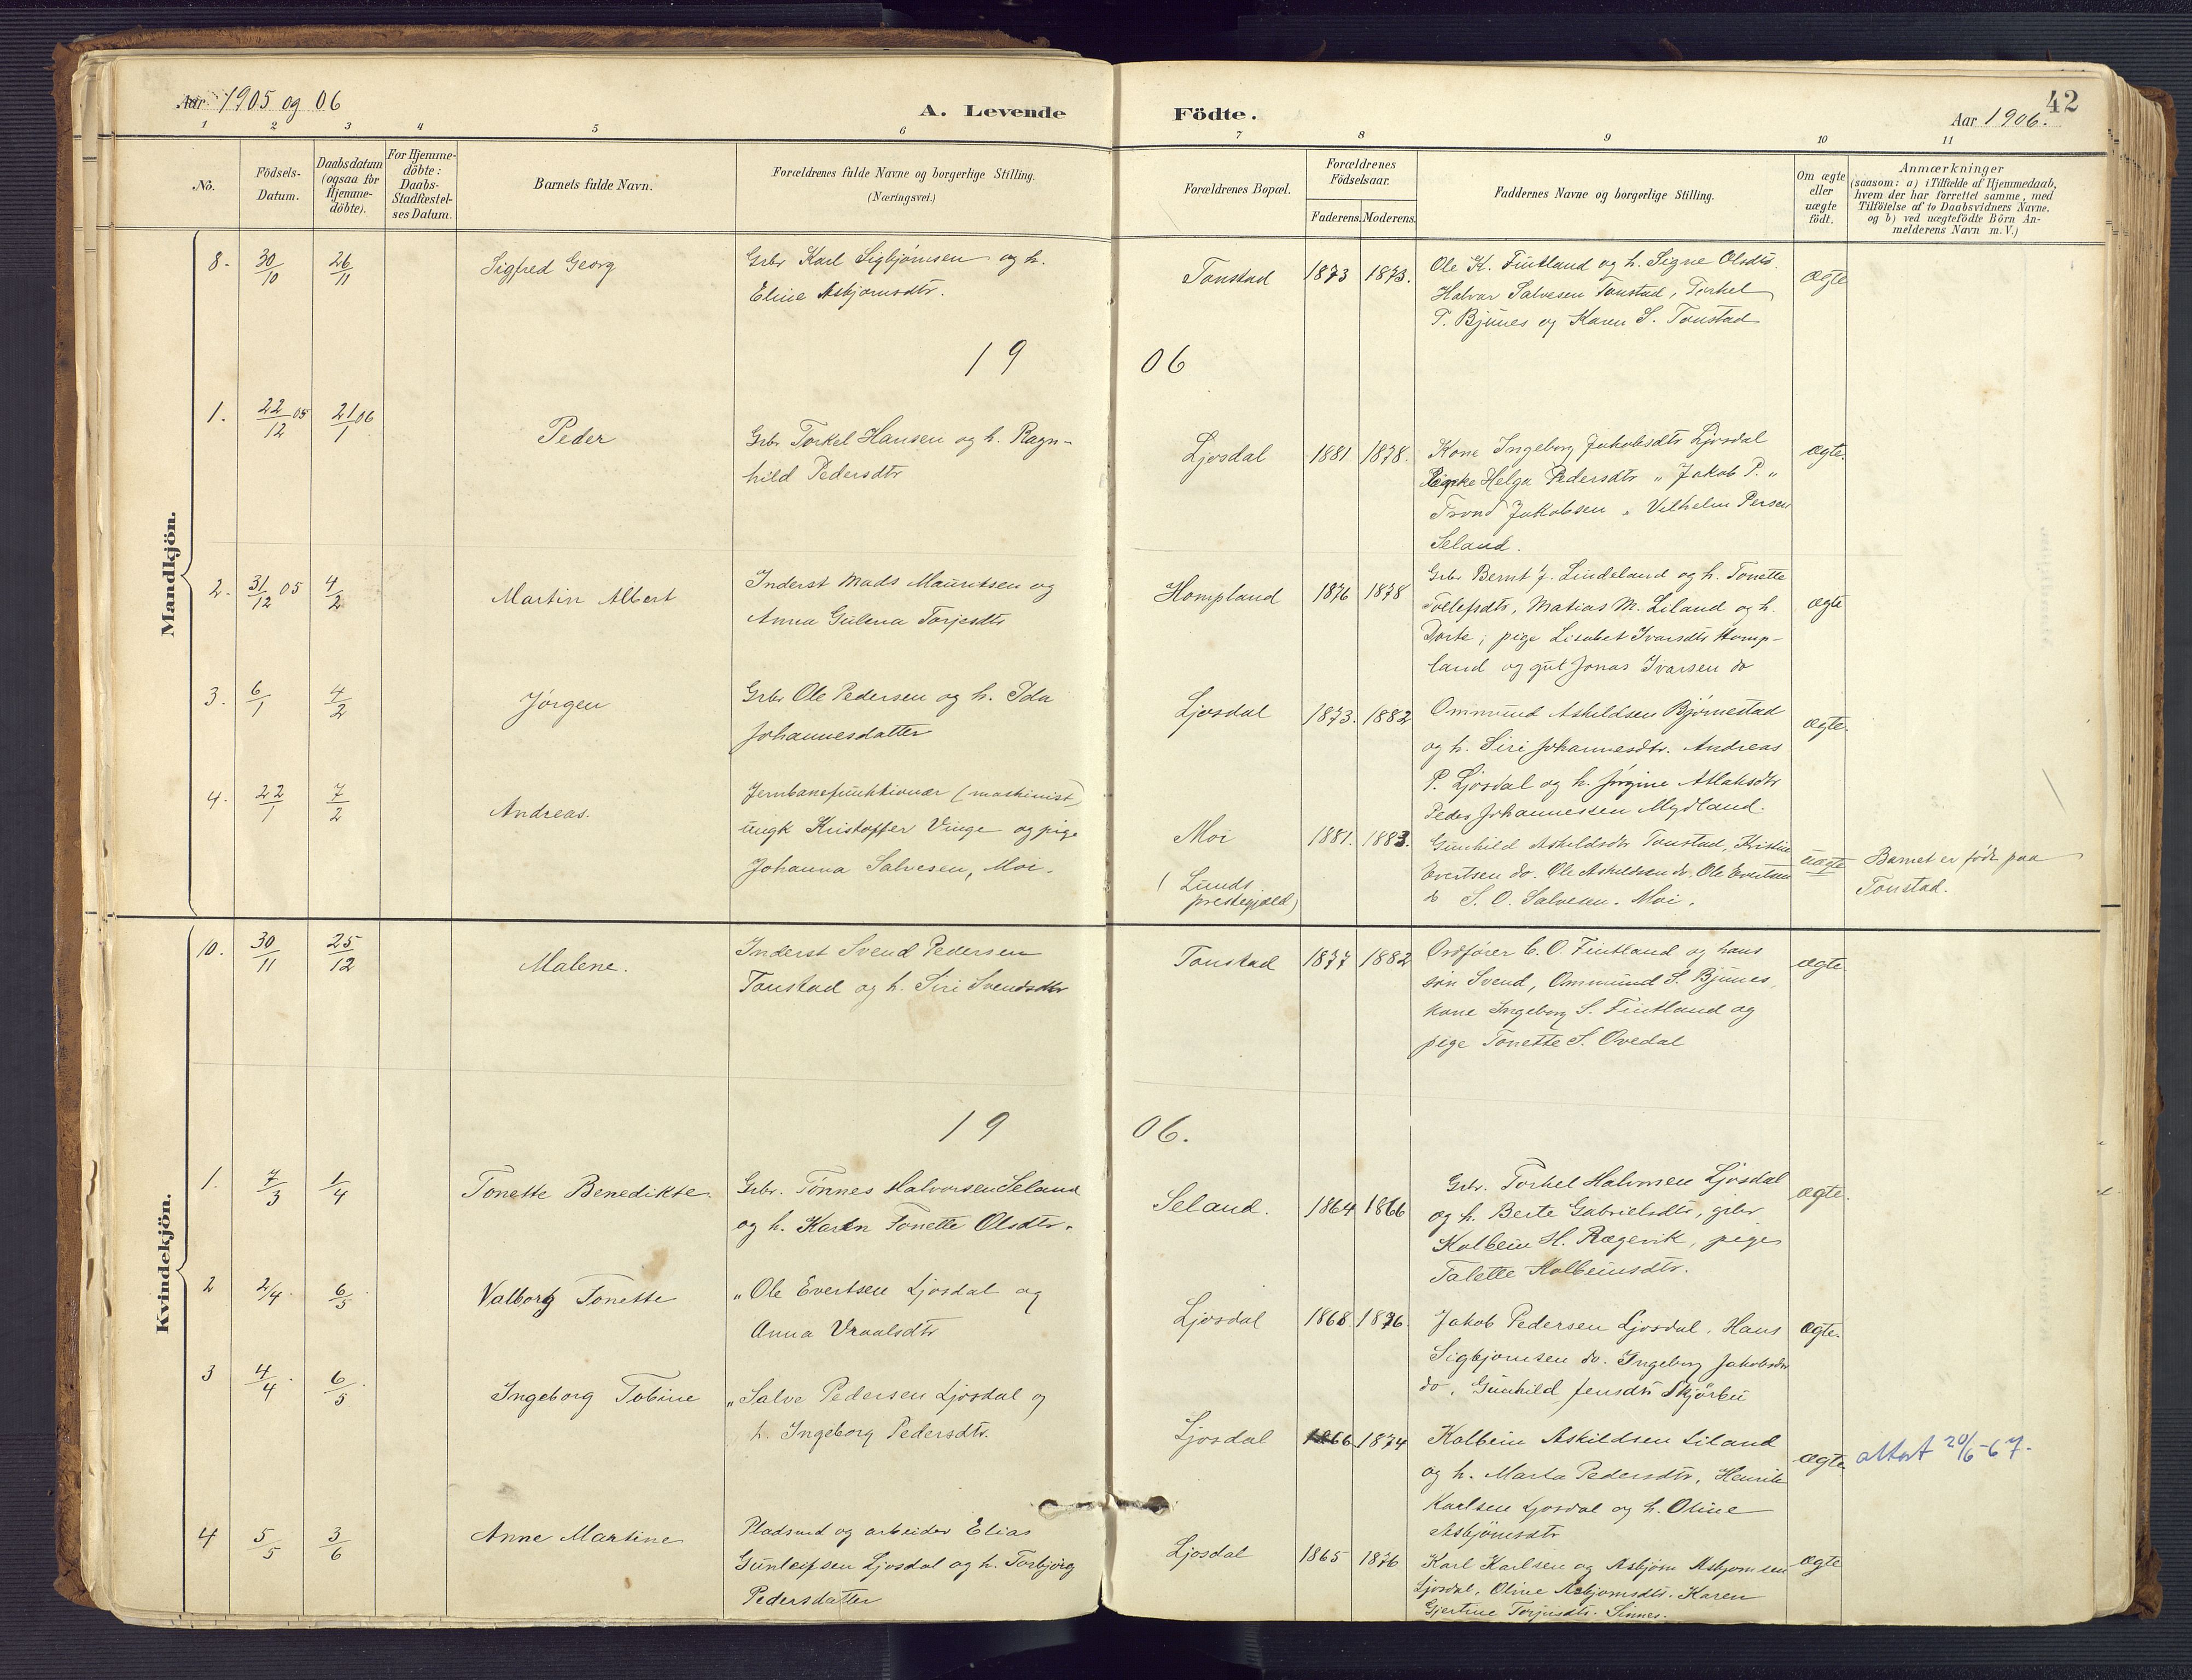 Aar 1905 og 06
A. Levende
Födte.
Aar 1906.
42
1 2 3 4 5 6 7 8 9 10 11
No.
Födsels-
Datum.
Daabsdatum
(ogsaa for
Hjemme-
döbte).
For Hjemme-
döbte:
Daabs-
Stadfæstel-
ses Datum.
Barnets fulde Navn.
Forældrenes fulde Navne og borgerlige Stilling.
(Næringsvei.)
Forældrenes Bopæl.
Forældrenes
Födselsaar.
Faderens. Moderens.
Faddernes Navne og borgerlige Stilling.
Om ægte
eller
uægte
födt.
Anmærkninger
(saasom: a) i Tilfælde af Hjemmedaab,
hvem der har forrettet samme, med
Tilföielse af to Daabsvidners Navne,
og b) ved uægtefödte Börn An-
melderens Navn m.V.)
Mandkjön.
8. 30/10 26/11 Sigfred Georg
Grbr Karl Sigbjörnsen og h.
Eline Asbjørnsdtr.
Tonstad 1873 1873.
Ole K. Fintland og h. Signe Olsdtr.
Halvar Salvesen Tonstad, Torkel
T. Bjunes og Karen S. Tonstad
ægte
19 06
1. 22/12 05 21/1 06 Peder
Grbr Torkel Hansen og h. Ragn-
hild Pedersdtr
Ljosdal 1881 1878.
Kone Ingeborg Jakobsdtr Ljosdal
Helga Pedersdtr " Jakob P. "
Trond Jakobsen " Vilhelm Persen
Seland.
ægte.
2. 31/12 05 4/2 Martin Albert
Inderst Mads Mauritsen og
Anna Gulena Torjesdtr
Hompland 1876 1878
Grbr Bernt J. Lindeland og h. Tonette
Tollefsdtr, Matias M. Liland og h.
Dorte, pige Lisabet Ivarsdtr Homp-
land og gut Jonas Ivarsen do
ægte
3. 6/1 4/2 Jörgen
Grbr Ole Pedersen og h. Ida
Johannesdatter
Ljosdal 1873. 1882
Ommund Askildsen Bjørnestad
og h. Siri Johannesdtr. Andreas
P. Ljosdal og h. Jørgine Atlaksdtr
Peder Johannessen Mydland.
ægte.
4. 22/1 7/2 Andreas.
Jernbanefunktionær (maskinist)
ungk Kristoffer Vinge og pige
Johanna Salvesen, Moi.
Moi
(Lunds
prestegjæld)
1881. 1883.
Gunhild Askildsdtr Tonstad, Kristine
Evertsen do. Ole Askildsen do. Ole Evertsen
do S. O. Salvesen. Moi.
uægte
Barnet er født paa
Tonstad.
Kvindekjön.
10. 30/11 25/12 Malene.
Inderst Svend Pedersen
Tonstad og h. Siri Svendsdtr
Tonstad 1877 1882
Ordfører C. O. Fintland og hans
søn Svend, Ommund S. Bjunes,
kone Ingeborg S. Fintland og
pige Tonette S. Ovedal
ægte
19 06.
1. 7/3 1/4 Tonette Benedikte.
Grbr. Tønnes Halvorsen Seland
og h. Karen Tonette Olsdtr.
Seland. 1864 1866
Grbr. Torkel Halvorsen Ljosdal
og h. Berte Gabrielsdtr, grbr
Kolbein H. Rægevik, pige
Talette Kolbeinsdtr.
ægte.
2 2/4 6/5 Valborg Tonette
" Ole Evertsen Ljosdal og
Anna Vraalsdtr
Ljosdal 1868. 1876.
Jakob Pedersen Ljosdal, Hans
Sigbjørnsen do. Ingeborg Jakobsdtr
do, Gunhild Jensdtr
ægte.
3 4/4 6/5 Ingeborg Tobine
" Salve Pedersen Ljosdal og
h. Ingeborg Pedersdtr.
Ljosdal 1866 1874
Kolbein Askildsen Liland
og h. Marta Pedersdtr, Henrik
Karlsen Ljosdal og h. Oline
Asbjørnsdtr
ægte
attest 20/6-67.
4 5/5 3/6 Anne Martine
Pladsmd og arbeider Elias
Gunleifsen Ljosdal og h. Torbjørg
Pedersdatter
Ljosdal 1865 1876
Karl Karlsen og Asbjørn Asbjørnsen
Ljosdal, Oline Asbjørnsdtr. Karen
Gjertine Torjusdtr. Sinnes.
ægte